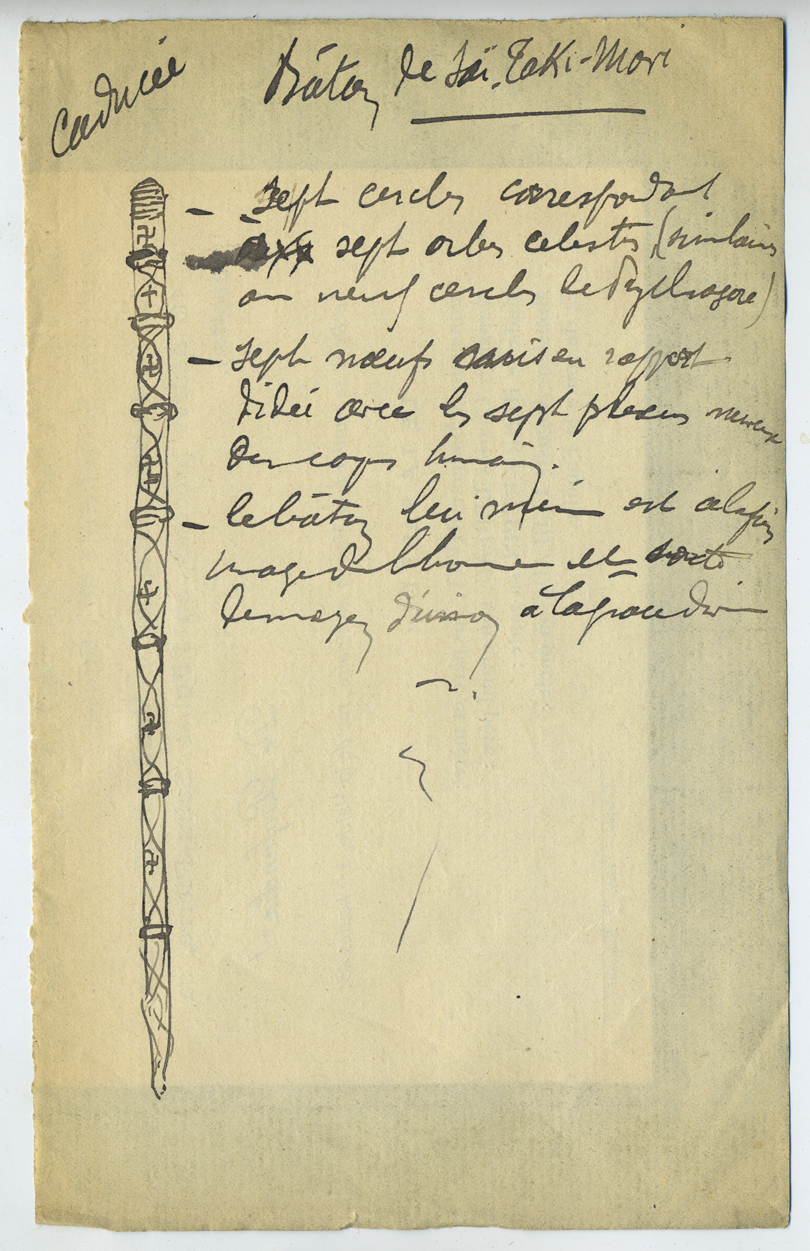 Caducée
Bâton de Saï-Taki-Mori
- Sept cercles correspondant
aux sept orbes celestes (similaires
aux neuf cercles de Pythagore)
- Sept nœuds en rapport
d'idée avec les sept plexus nerveux
du corps humain.
- le bâton lui même est à la fois
image de l'homme et
le moyen à la grace